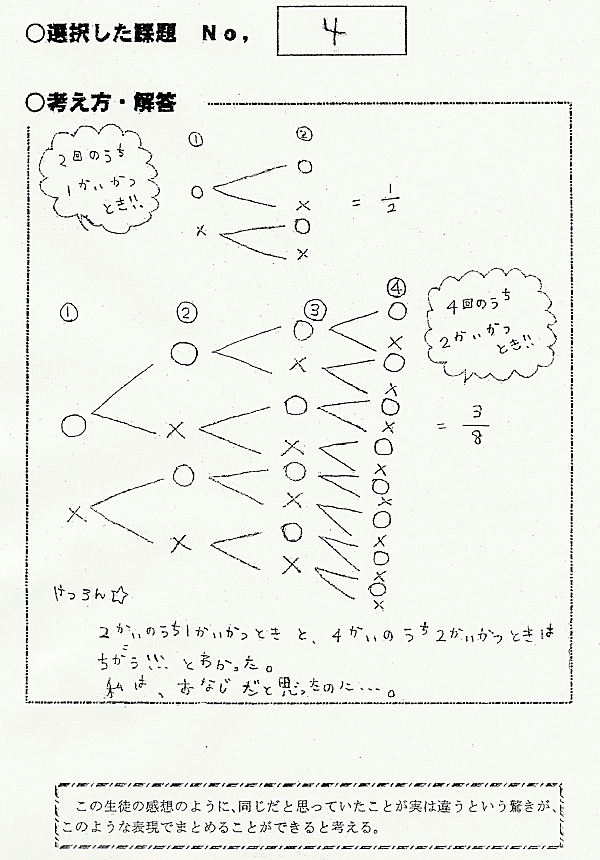 ○選択した課題 No, 4
○考え方・解答
2回のうち
1かいかつ
とき!!
① ②
○ ○
× = 1/2
× ○
×
① ② ③ ④
4回のうち
2かいかつ
とき!!
○ ○ ○ ○
×
× ○
×
× ○ ○
×
× ○
×
× ○ ○ ○
×
× ○
×
× ○ ○
×
× ○
×
= 3/8
けつろん☆
2かいのうち1かいかつときと、4かいのうち2かいかつときは
ちがう!!! とわかった。
私は、おなじだと思ったのに…。
この生徒の感想のように、同じだと思っていたことが実は違うという驚きが、
このような表現でまとめることができると考える。